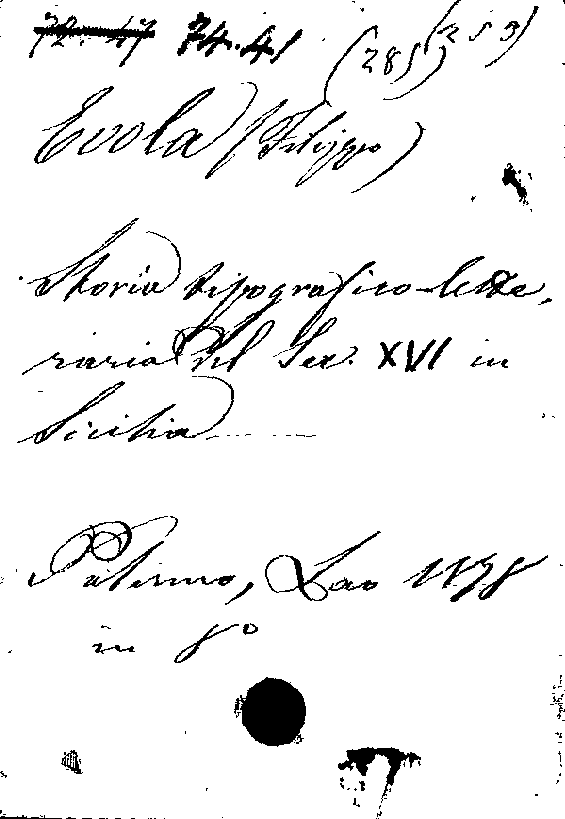 72.47 74.41 (285) (253)
Evola (Filippo)
Storia tipografico-lette,
raria del Sec. XVI in
Sicilia
Palermo, Lao 1878
in 8º